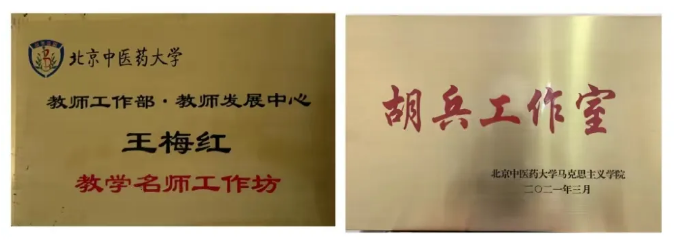 北京中医药大学
教师工作部·教师发展中心
王梅红
教学名师工作坊
胡兵工作室
北京中医药大学马克思主义学院
二〇二一年三月